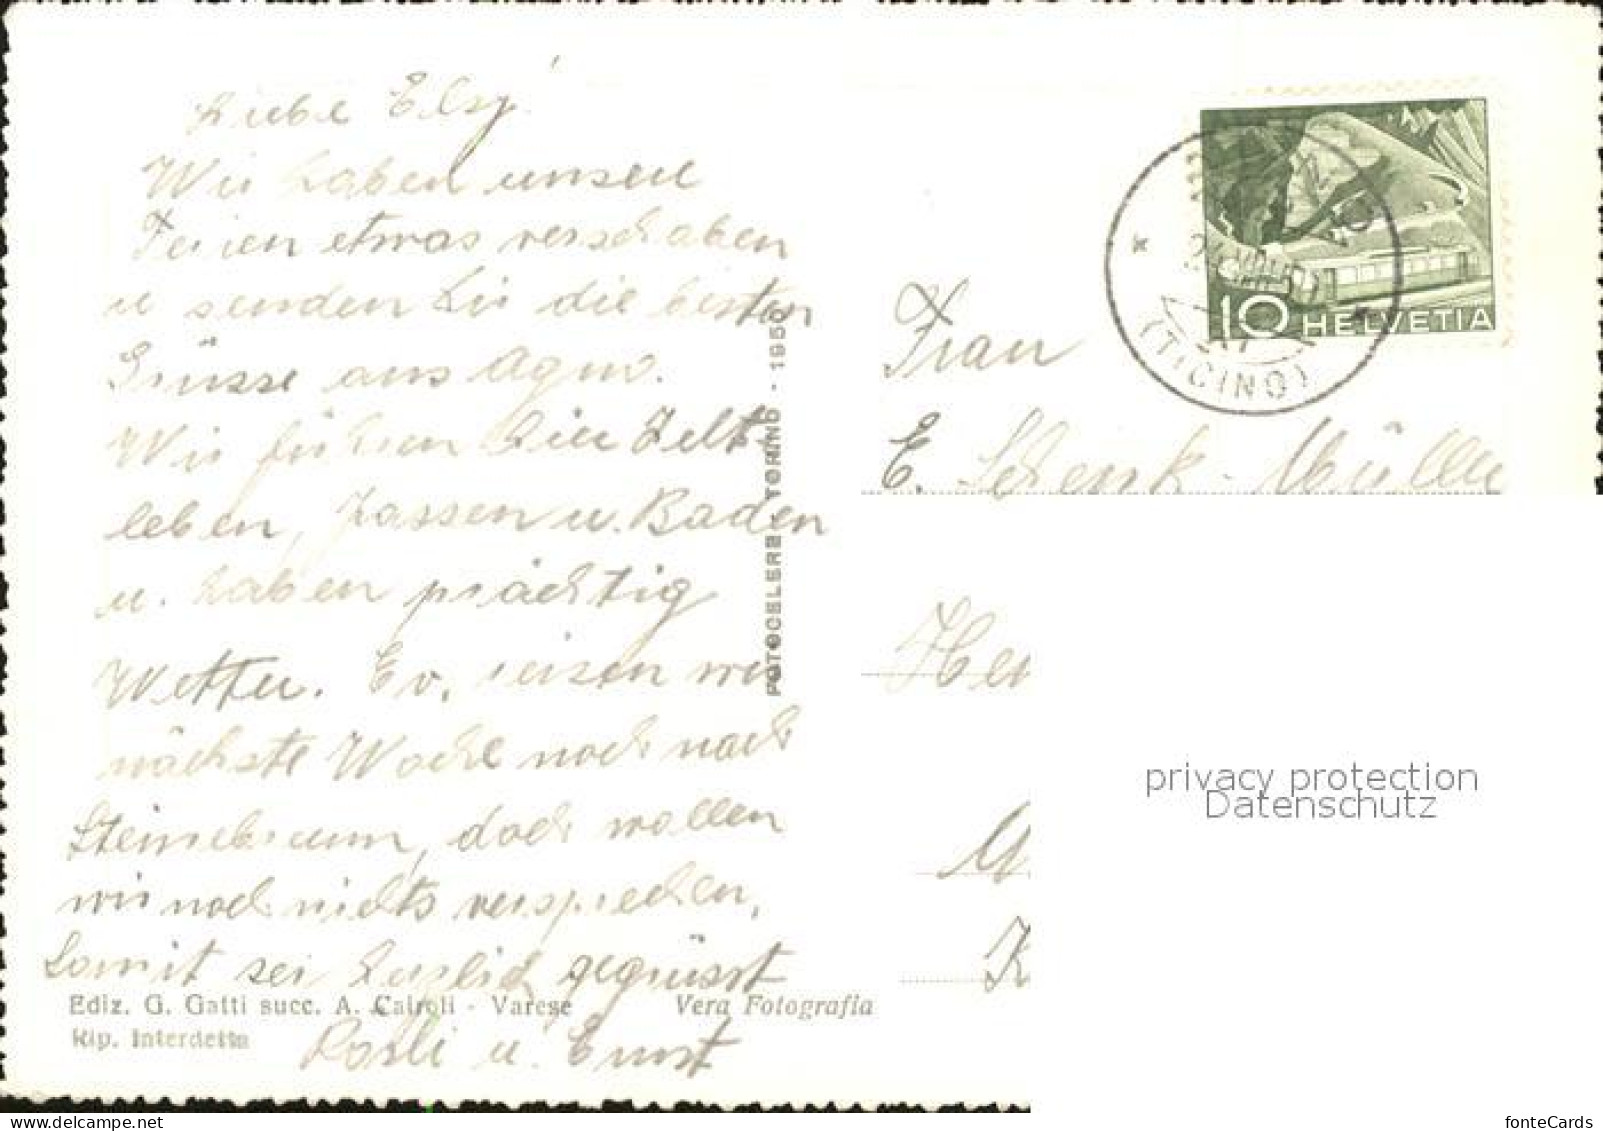 Liebe Elsy!
Wir haben unsere
Ferien etwas verschoben
u senden Dir die besten
Grüsse aus Agno.
Wir führen hier Zelt-
leben, Jassen u. Baden
u. haben prächtig
Wetter. Ev. reisen wir
nächste Woche noch nach
Steinebrunn, doch wollen
wir noch nichts versprechen,
Somit sei herzlich gegrüsst
Rösli u. Ernst
Ediz. G. Gatti succ. A. Cairoli - Varese
Vera Fotografia
Rip. Interdetta
FOTOCELERE - TORINO - 1950
10 HELVETIA
(TICINO)
Frau
E. Schenk-Müller
privacy protection
Datenschutz
fonteCards